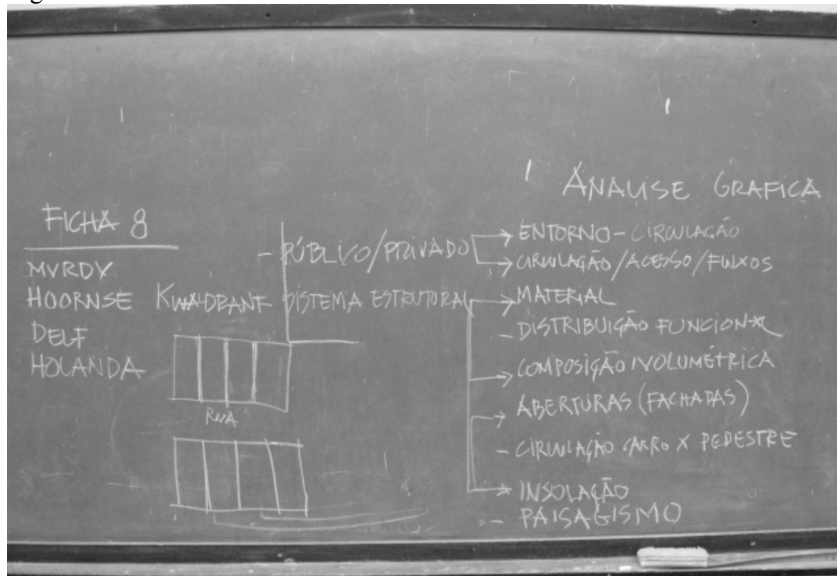 FICHA 8
MVRDV
HOORNSE KWADRANT
DELF
HOLANDA
RUA
- PÚBLICO/PRIVADO
SISTEMA ESTRUTURAL
ANALISE GRAFICA
ENTORNO - CIRCULAÇÃO
CIRCULAÇÃO/ACESSO/FLUXOS
MATERIAL
- DISTRIBUIÇÃO FUNCIONAL
COMPOSIÇÃO VOLUMÉTRICA
ABERTURAS (FACHADAS)
- CIRCULAÇÃO CARRO X PEDESTRE
INSOLAÇÃO
- PAISAGISMO